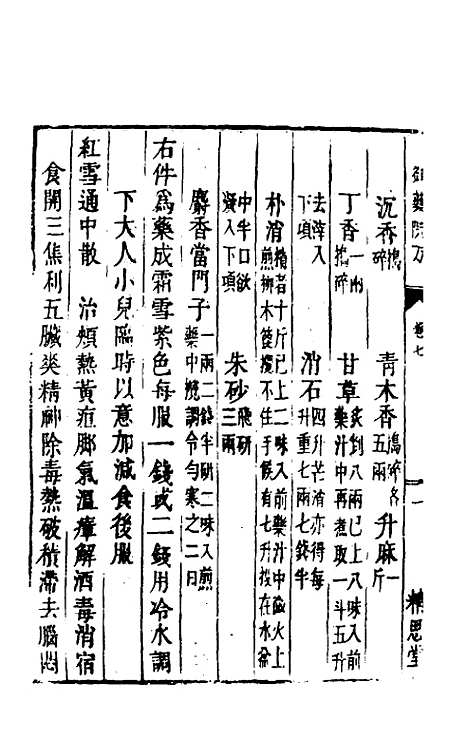 御藥院方 卷七 一 精思堂
沉香搗碎 青木香五兩搗碎各 升麻一斤
丁香一兩搗碎 甘草炙剉八兩已上八味入前藥汁中再煮取一斗五升
去滓入下項 滑石四升芒消亦得每升重七兩七錢半
朴消精者十斤已上二味入前藥汁中微火上煎柳木篦攪不住手候有七升投在水盆
中半日欲凝入下項 朱砂三兩飛研
麝香當門子一兩二錢半研二味入煎藥中攪調令勻寒之二日
右件爲藥成霜雪紫色每服一錢或二錢用冷水調
下大人小兒臨時以意加減食後服
紅雪通中散 治煩熱黃疸脚氣溫瘴解酒毒消宿
食開三焦利五臟爽精神除毒熱破積滯去腦悶